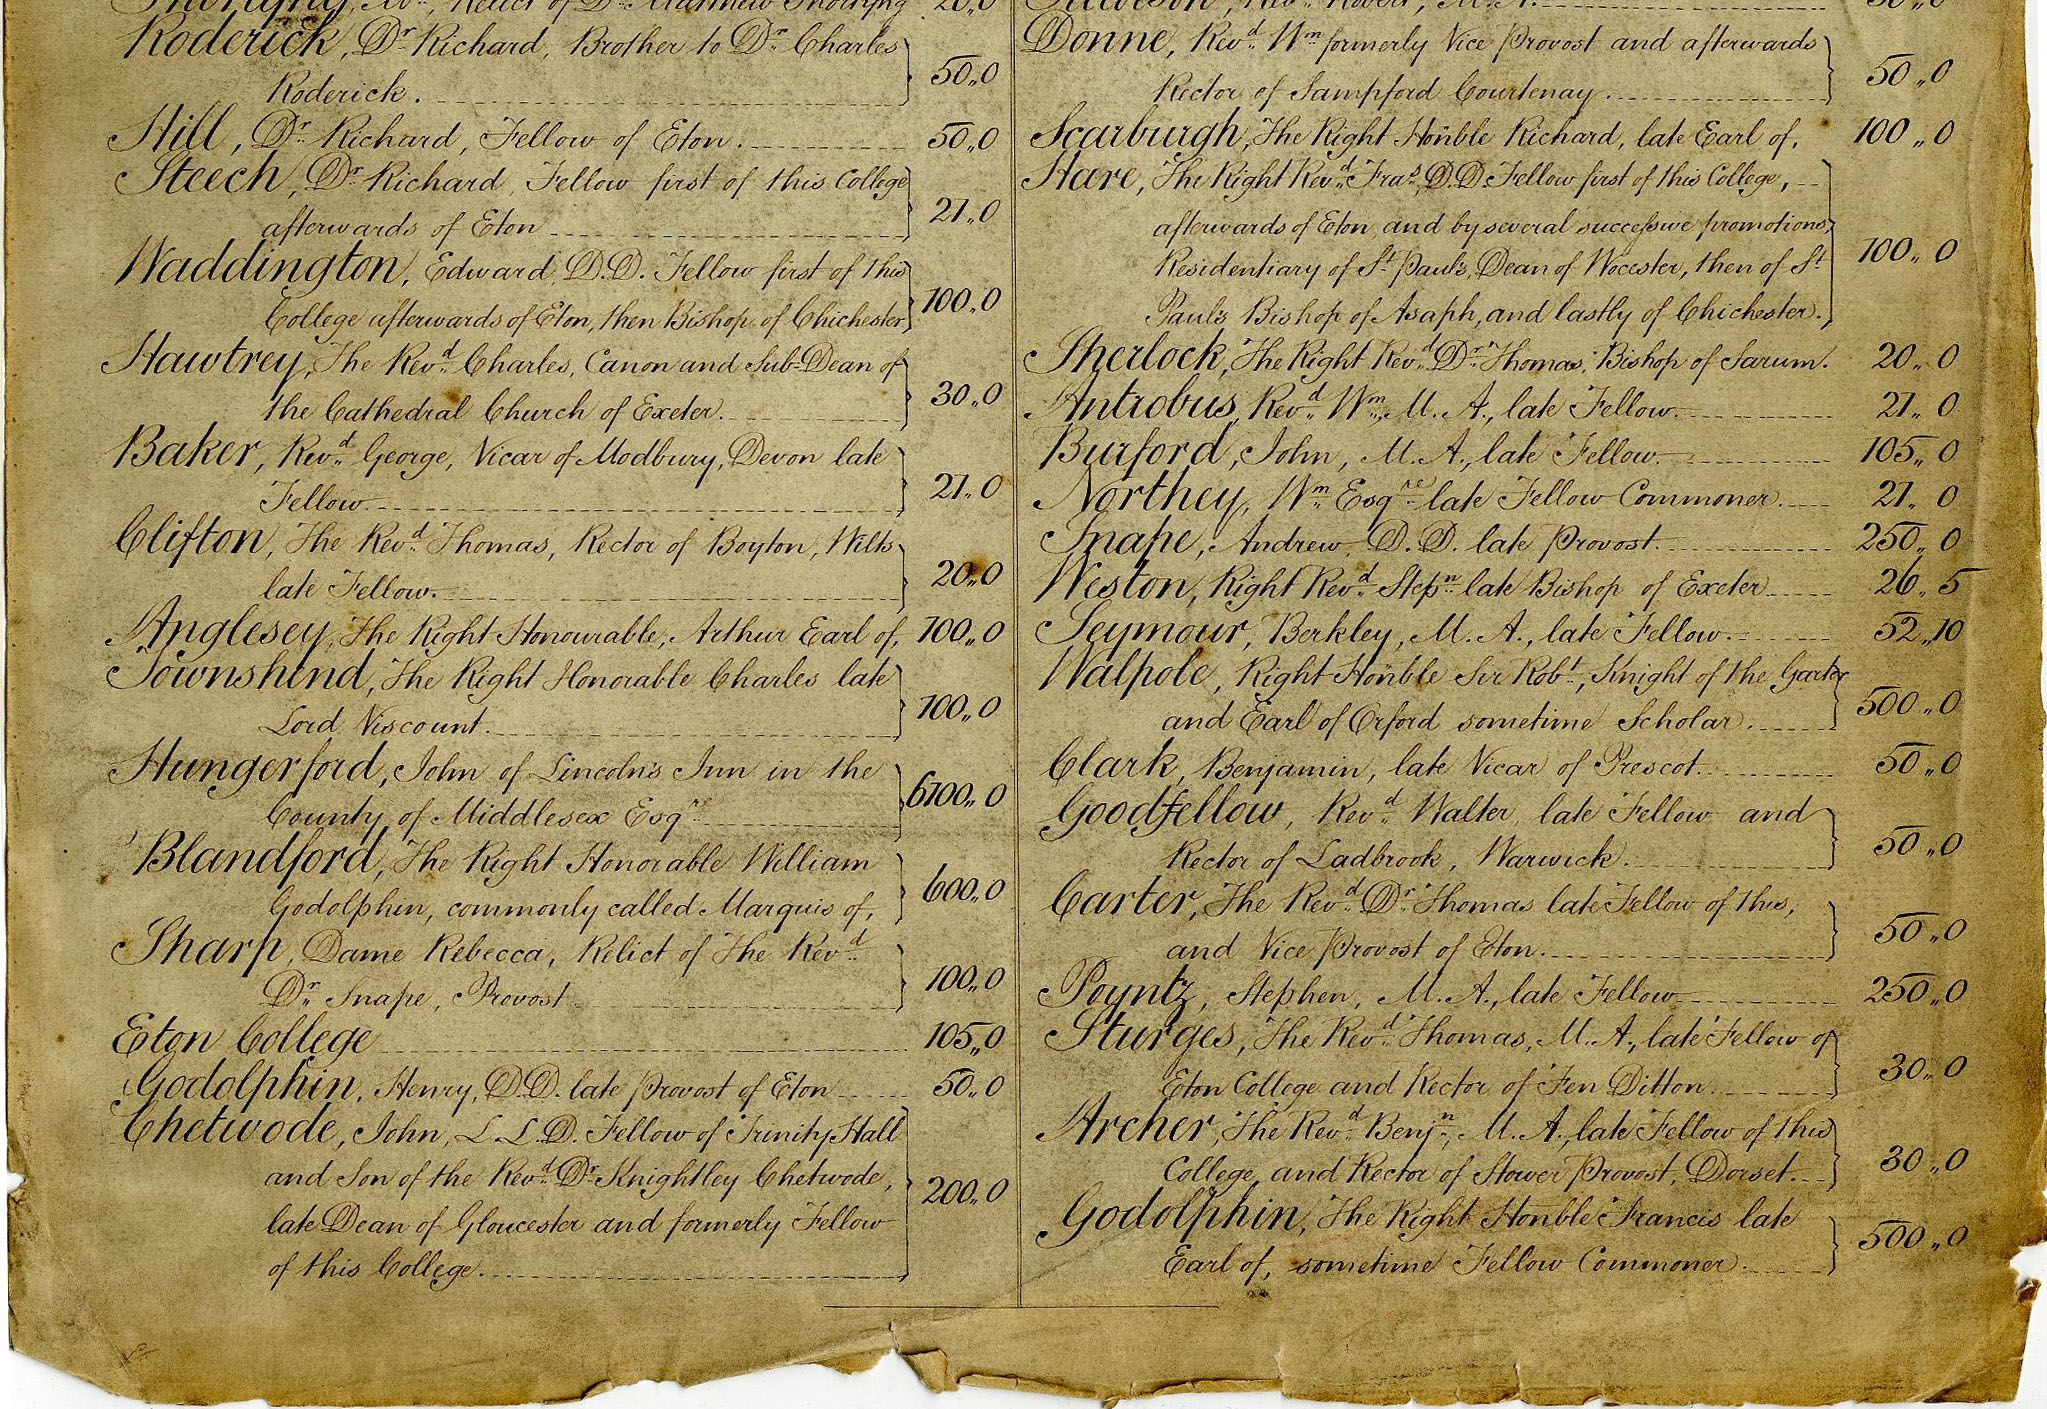 Relict of Dr. Matthew 20,,0
Roderick, Dr. Richard, Brother to Dr. Charles
Roderick. 50,,0
Hill, Dr. Richard, Fellow of Eton. 50,,0
Steech, Dr. Richard, Fellow first of this College
afterwards of Eton 21,,0
Waddington, Edward, D.D. Fellow first of this
College afterwards of Eton, then Bishop of Chichester 100,,0
Hawtrey, The Revd. Charles, Canon and Sub-Dean of
the Cathedral Church of Exeter. 30,,0
Baker, Revd. George, Vicar of Modbury, Devon late
Fellow. 21,,0
Clifton, The Revd. Thomas, Rector of Boyton, Wilts
late Fellow. 20,,0
Anglesey, The Right Honourable, Arthur Earl of, 100,,0
Townshend, The Right Honorable Charles late
Lord Viscount. 100,,0
Hungerford, John of Lincoln's Inn in the
County of Middlesex Esqre. 6100,,0
Blandford, The Right Honorable William
Godolphin, commonly called Marquis of, 600,,0
Sharp, Dame Rebecca, Relict of The Revd.
Dr. Snape, Provost 100,,0
Eton College 105,,0
Godolphin, Henry, D.D. late Provost of Eton 50,,0
Chetwode, John, L L.D. Fellow of Trinity Hall
and Son of the Revd. Dr. Knightley Chetwode,
late Dean of Gloucester and formerly Fellow
of this College. 200,,0
Revd. Robert, M.A. 50,,0
Donne, Revd. Wm formerly Vice Provost and afterwards
Rector of Sampford Courtenay. 50,,0
Scarburgh, The Right Honble Richard, late Earl of, 100,,0
Hare, The Right Revd. Fras. D.D. Fellow first of this College,
afterwards of Eton, and by several successive promotions,
Residentiary of St. Paul's, Dean of Wocester, then of St.
Paul's Bishop of Asaph, and lastly of Chichester. 100,,0
Sherlock, The Right Revd. Dr. Thomas, Bishop of Sarum. 20,,0
Antrobus, Revd. Wm., M.A., late Fellow. 21,,0
Burford, John, M.A., late Fellow. 105,,0
Northey, Wm. Esqre. late Fellow Commoner. 21,,0
Snape, Andrew, D.D. late Provost. 250,,0
Weston, Right Revd. Stepn. late Bishop of Exeter 26,,5
Seymour, Berkley, M.A., late Fellow. 52,,10
Walpole, Right Honble Sir Robt., Knight of the Garter
and Earl of Orford sometime Scholar. 500,,0
Clark, Benjamin, late Vicar of Prescot. 50,,0
Goodfellow, Revd. Walter, late Fellow and
Rector of Ladbrook, Warwick. 50,,0
Carter, The Revd. Dr. Thomas late Fellow of this,
and Vice Provost of Eton. 50,,0
Poyntz, Stephen, M.A., late Fellow 250,,0
Sturges, The Revd. Thomas, M.A., late Fellow of
Eton College and Rector of Fen Ditton. 30,,0
Archer, The Revd. Benjn., M.A., late Fellow of this
College, and Rector of Stower Provost, Dorset. 30,,0
Godolphin, The Right Honble Francis late
Earl of, sometime Fellow Commoner. 500,,0